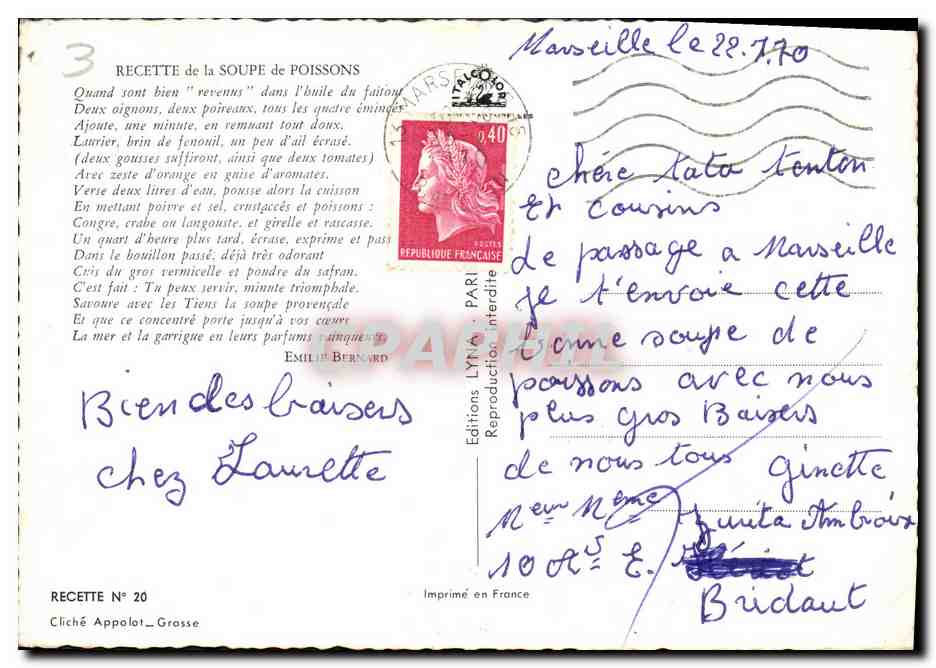 3
Marseille le 22.7.70
RECETTE de la SOUPE de POISSONS
Quand sont bien "revenus" dans l'huile du faitout
Deux oignons, deux poireaux, tous les quatre émincés
Ajoute, une minute, en remuant tout doux.
Laurier, brin de fenouil, un peu d'ail écrasé.
(deux gousses suffiront, ainsi que deux tomates)
Avec zeste d'orange en guise d'aromates.
Verse deux livres d'eau, pousse alors la cuisson
En mettant poivre et sel, crustacés et poissons :
Congre, crabe ou langouste, et girelle et rascasse.
Un quart d'heure plus tard, écrase, exprime et pass
Dans le bouillon passé, déjà très odorant
Cuis du gros vermicelle et poudre du safran.
C'est fait : Tu peux servir, minute triomphale.
Savoure avec les Tiens la soupe provençale
Et que ce concentré porte jusqu'à vos cœurs
La mer et la garrigue en leurs parfums vainqueurs.
EMILIE BERNARD
Bien des baisers
chez Laurette
RECETTE N° 20
Cliché Appolot_Grasse
Imprimé en France
Editions LYNA - PARI
Reproduction interdite
ITALCOLOR
MARSE
0,40
POSTES
REPUBLIQUE FRANÇAISE
chère tata tonton
et cousins
de passage a Marseille
je t'envoie cette
bonne soupe de
poissons avec nous
plus gros Baisers
de nous tous Ginette
Meur Meme Zurita Ambroix
10 E.
Bridaut
CPARPHIL